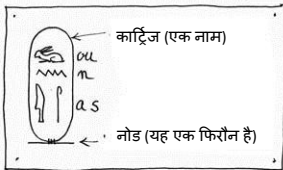 कार्ट्रिज (एक नाम)
ou
n
as
नोड (यह एक फिरौन है)